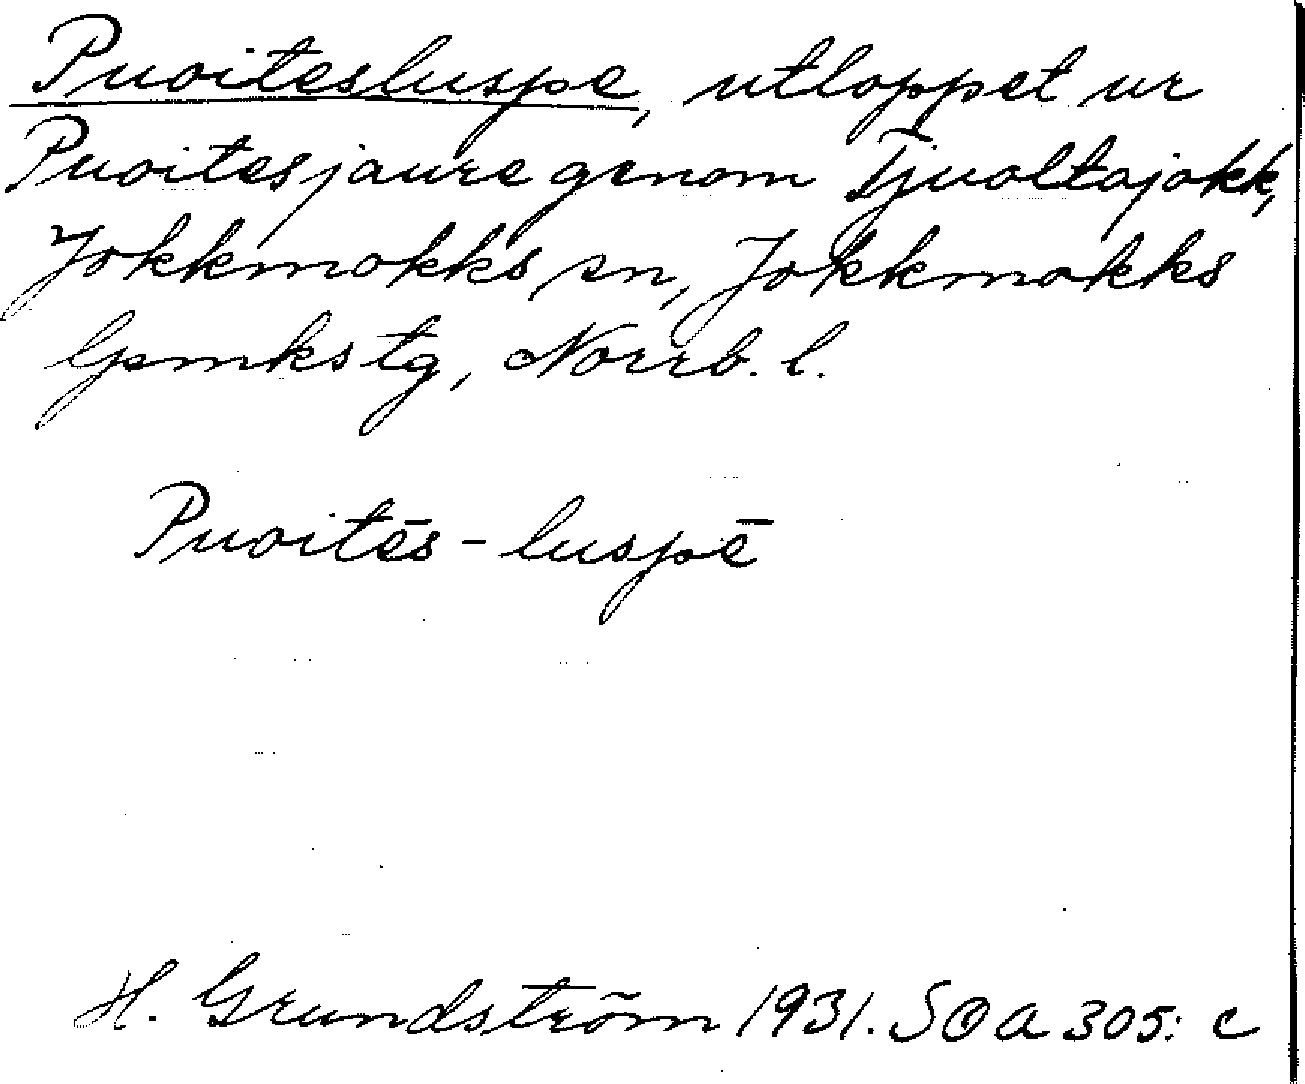 Puoitesluspe, utloppet ur
Puoitesjaure genom Tjuoltajokk,
Jokkmokks sn, Jokkmokks
lpmkstg, Norrb. l.
Puoitēs-luspē
H. Grundström 1931. SOA 305: c